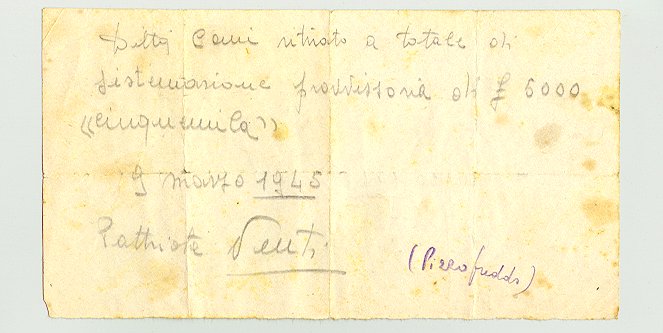 Ditta Cami ritirato a totale di
sistemazione provvisoria di £ 5000
«cinquemila»
9 marzo 1945
Pattriota Venti
(Pizzofreddo)